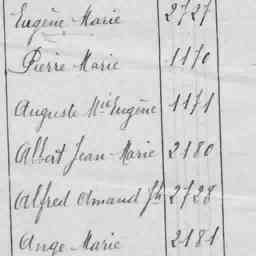 Eugène Marie 2727
Pierre Marie 1170
Auguste Mie Eugène 1171
Albert Jean-Marie 2180
Alfred Amand Jh 2728
Ange Marie 2181